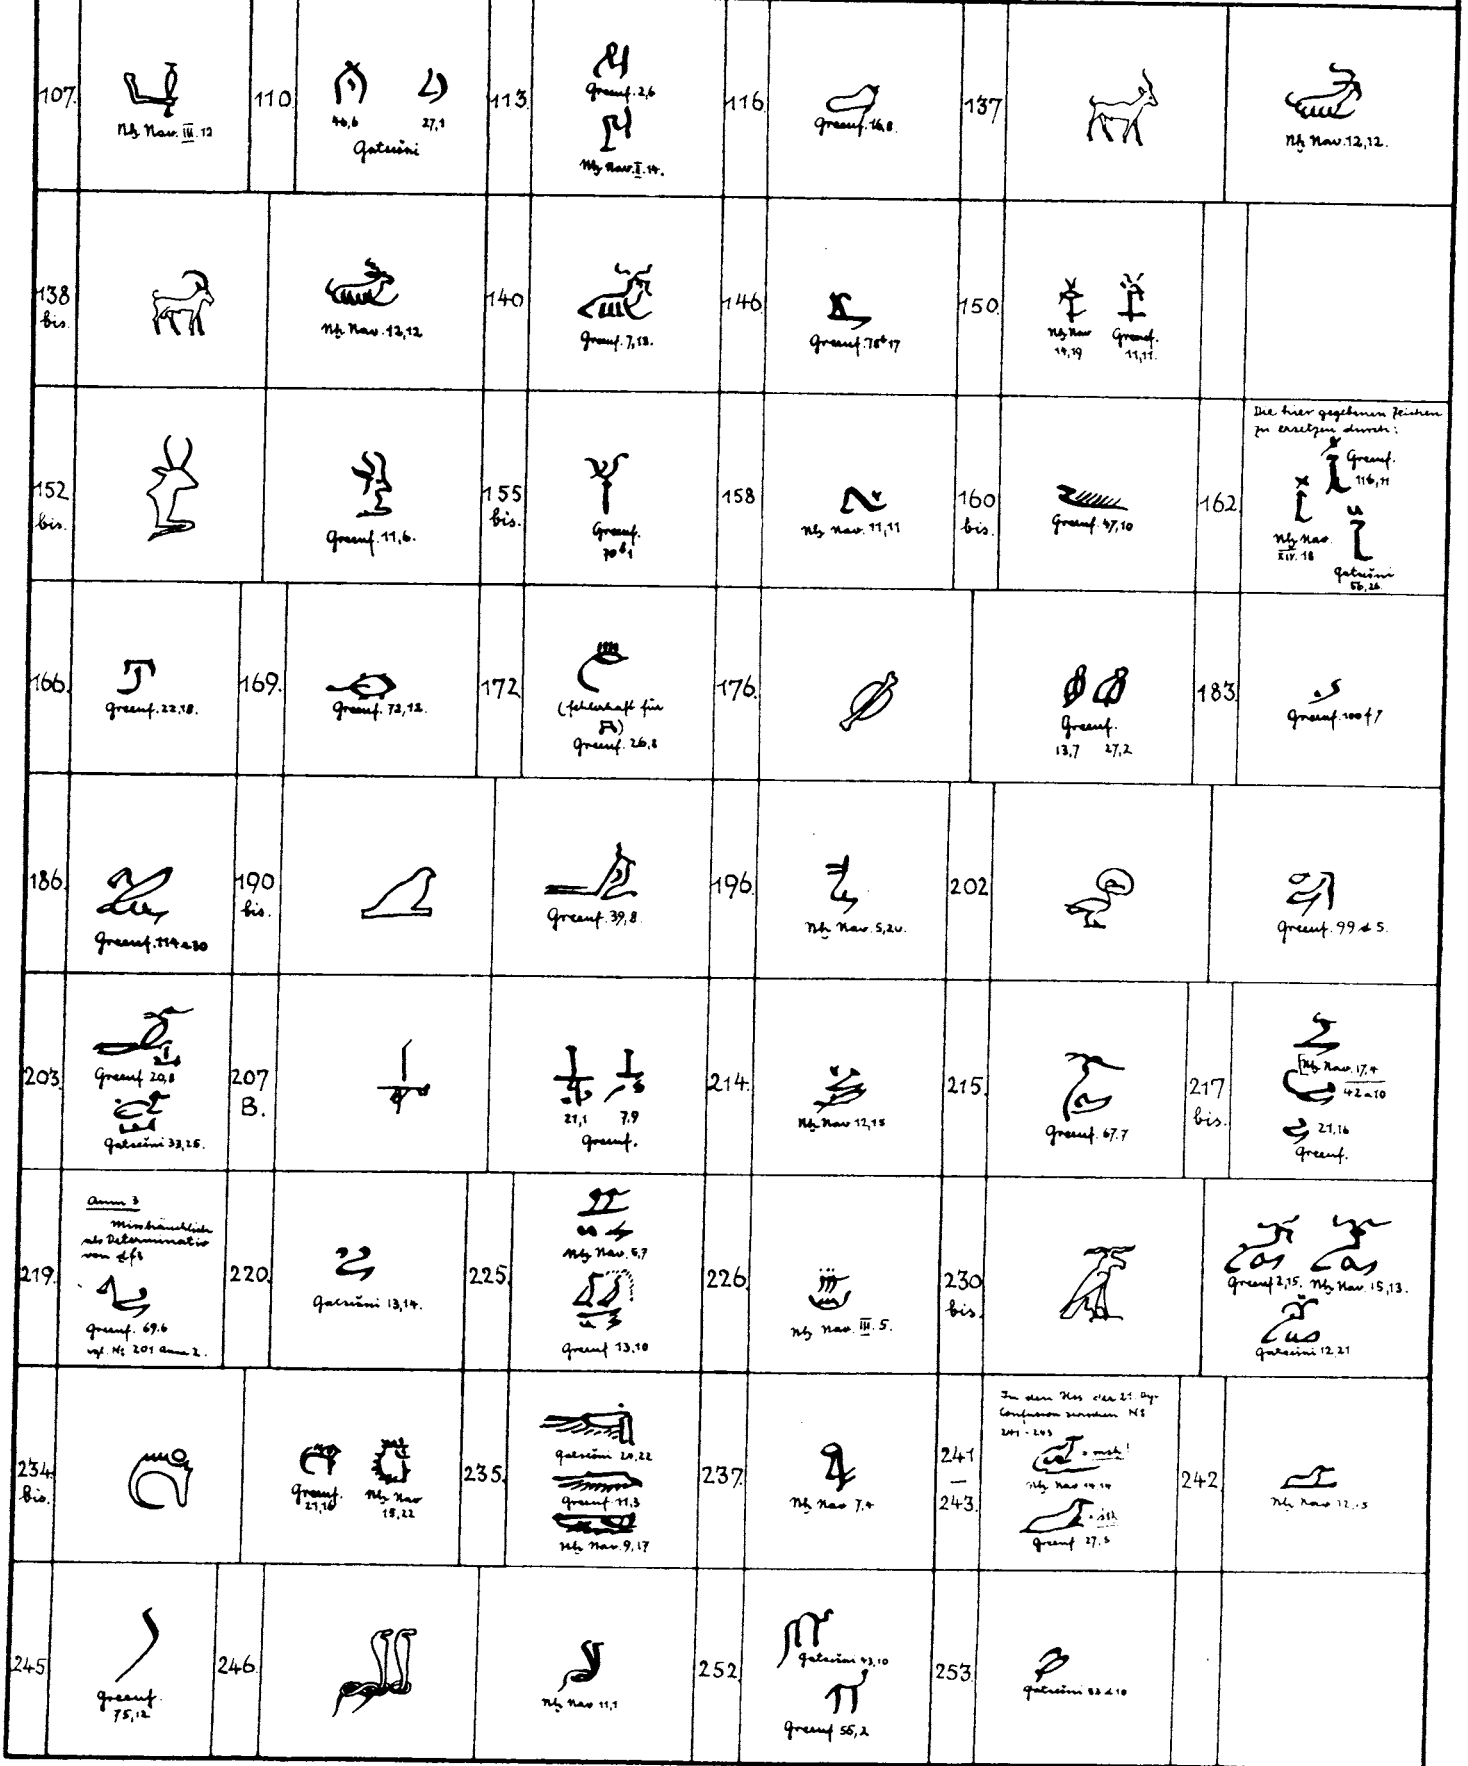 107.
Nḫ. Nav. III. 12
110.
46,6 27,1
Gatsešni
113.
Greenf. 2,6
Nḫ. Nav. II. 14.
116.
Greenf. 16,8.
137
Nḫ Nav. 12,12.
138 bis.
Nḫ. Nav. 12,12
140
Greenf. 7,12.
146.
Greenf.
150.
Nḫ Nav 14,19
Greenf. 11,11.
152 bis.
Greenf. 11,6.
155 bis.
Greenf.
158
Nḫ. Nav. 11,11
160 bis.
Greenf. 47,10
162.
Die hier gegebenen Zeichen
zu ersetzen durch:
Greenf.
116,11
Nḫ Nav.
XIV. 18
Gatsešni
56,26.
166.
Greenf. 22,18.
169.
Greenf. 72,12.
172
(fehlerhaft für
)
Greenf. 26,8
176.
Greenf.
13,7 27,2
183.
Greenf.
186.
Greenf.
190 bis.
Greenf. 39,8.
196.
Nḫ. Nav. 5,20.
202
Greenf. 99 5.
203.
Greenf 20,8
Gatsešni 33,25.
207 B.
21,1 7,9
Greenf.
214.
Nḫ. Nav 12,15
215.
Greenf. 67.7
217 bis.
Nḫ Nav. 17,4
42 a 10
21,16
Greenf.
219.
Anm 3
Missbräuchlich
als Determinativ
von
Greenf. 69.6
vgl. № 201 Anm 2.
220.
Gatsešni 13,14.
225.
Nḫ Nav. 5,7
Greenf 13,10
226.
Nḫ Nav. III. 5.
230 bis.
Greenf 2,15. Nḫ. Nav. 15,13.
Gatsešni 12.21
234 bis.
Greenf. 21,16
Nḫ Nav 15,22
235.
Gatsešni 20,22
Greenf 11,3
Nḫ. Nav. 9,17
237.
Nḫ Nav 7,4
241
—
243.
In den Hss der 21. Dy-
Confusion zwischen №
241 - 243
Nḫ Nav 14.14
Greenf 27,5
242.
Nḫ Nav
245
Greenf.
75,12
246.
Nḫ Nav 11,1
252.
Gatsešni 43,10
Greenf 55,2
253.
Gatsešni